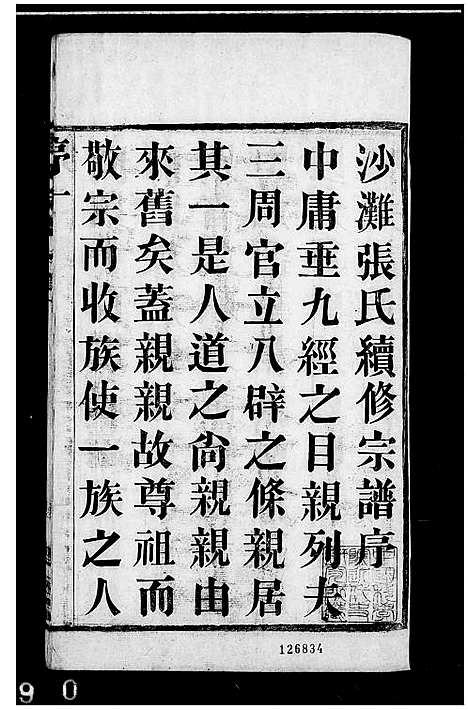 沙灘張氏續修宗譜序
中庸垂九經之目親列夫
三周官立八辟之條親居
其一是人道之尙親親由
來舊矣蓋親親故尊祖而
敬宗而收族使一族之人
序一
126834
9 0